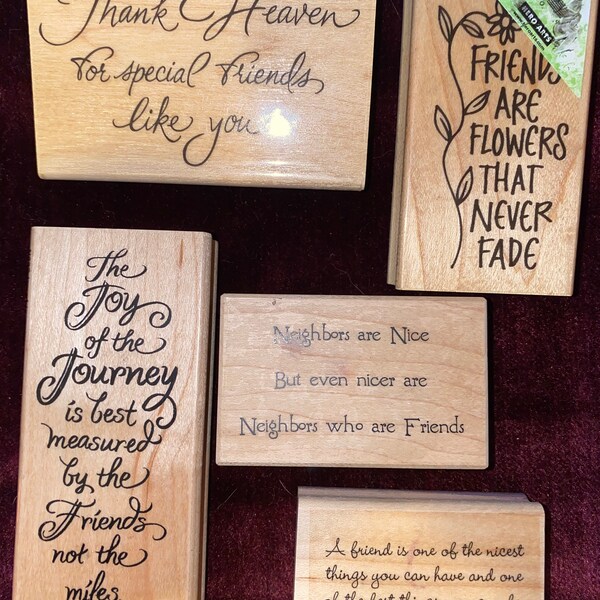 Thank Heaven
For special friends
like you
HERO ARTS
FRIENDS
ARE
FLOWERS
THAT
NEVER
FADE
The
Joy
of the
Journey
is best
measured
by the
Friends
not the
miles
Neighbors are Nice
But even nicer are
Neighbors who are Friends
A friend is one of the nicest
things you can have and one